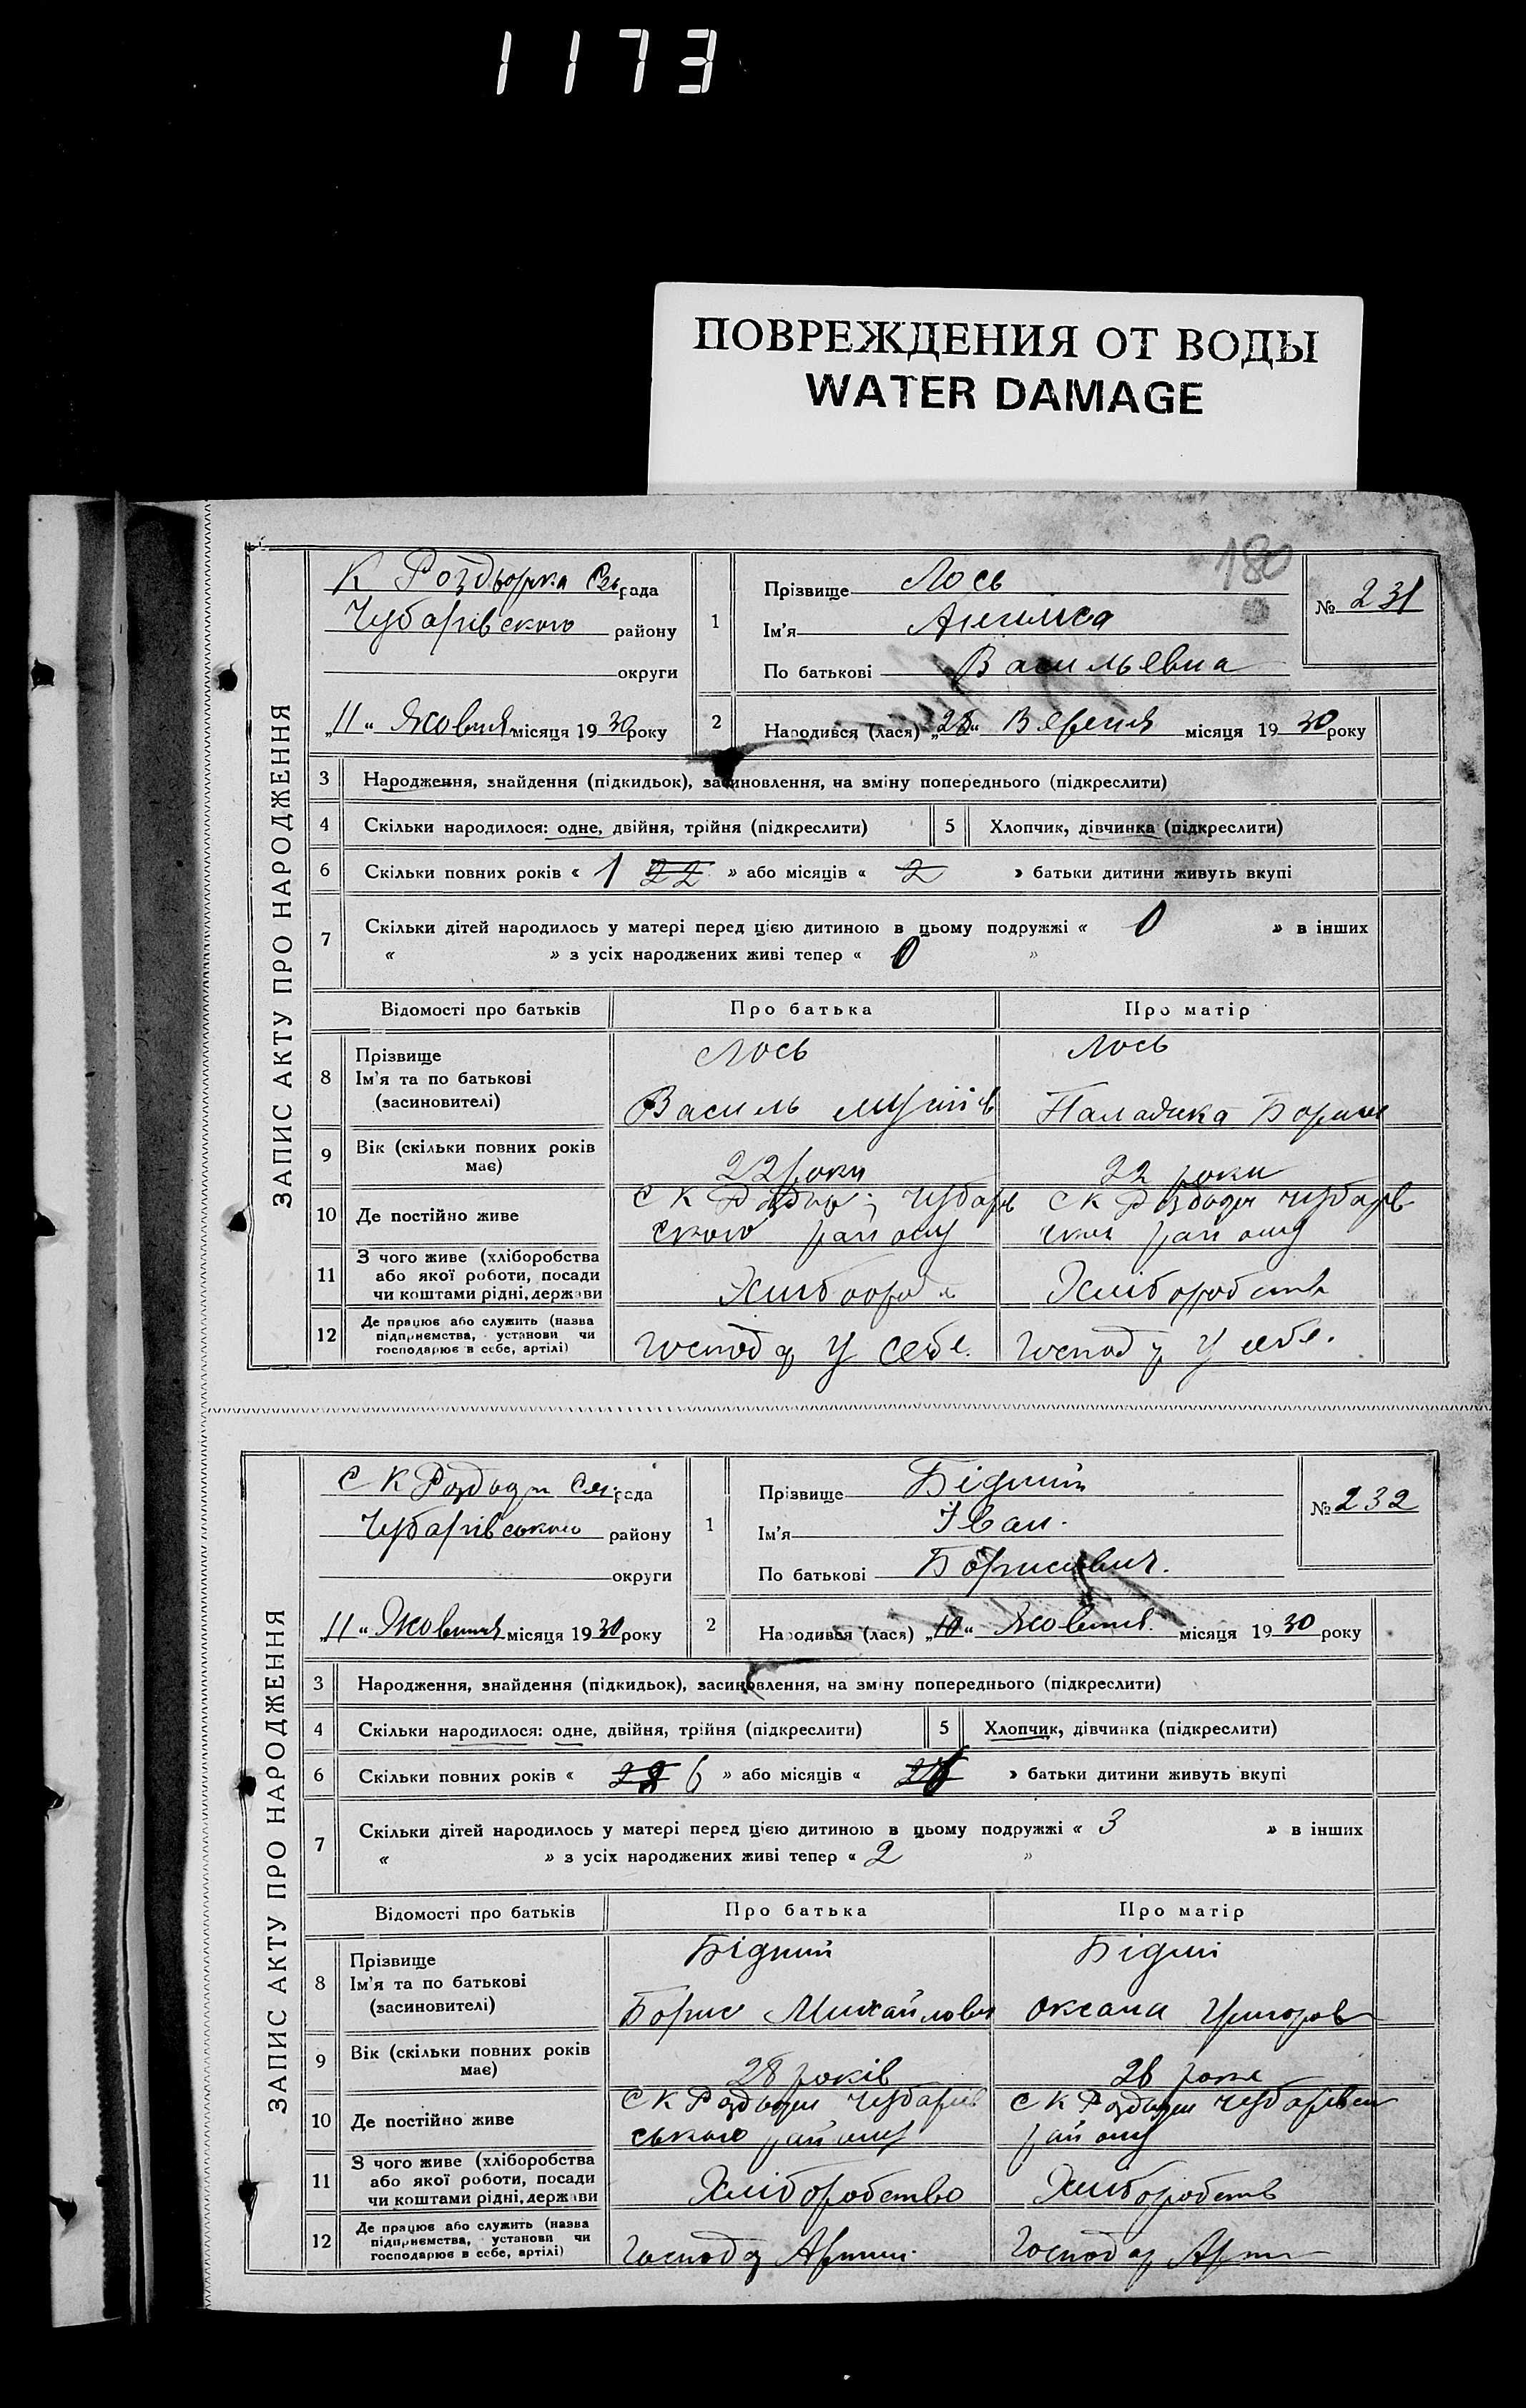 1173
ПОВРЕЖДЕНИЯ ОТ ВОДЫ
WATER DAMAGE
180
ЗАПИС АКТУ ПРО НАРОДЖЕННЯ
К Роздьорка Сел рада
Чубарівського району
округи
„11“ Жовтня місяця 1930 року
1
Прізвище Лось
Ім'я
По батькові Васильевна
№ 231
2
Народився (лася) „28“ Вересня місяця 1930 року
3 Народження, знайдення (підкидьок), засиновлення, на зміну попереднього (підкреслити)
4 Скільки народилося: одне, двійня, трійня (підкреслити)
5 Хлопчик, дівчинка (підкреслити)
6 Скільки повних років « 1 22 » або місяців « 2 » батьки дитини живуть вкупі
7 Скільки дітей народилось у матері перед цією дитиною в цьому подружжі « 0 » в інших
« » з усіх народжених живі тепер « 0 »
Відомості про батьків Про батька Про матір
8 Прізвище
Ім'я та по батькові
(засиновителі)
Лось
Василь
Лось
9 Вік (скільки повних років має)
22 роки
22 роки
10 Де постійно живе
С К Чубарів
ського району
С К Чубарів
району
11 З чого живе (хліборобства
або якої роботи, посади
чи коштами рідні, держави
Хліборобств
12 Де працює або служить (назва
підприємства, установи чи
господарює в себе, артілі)
Господ у себе.
Господ у себе.
ЗАПИС АКТУ ПРО НАРОДЖЕННЯ
С К рада
Чубарівського району
округи
„11“ Жовтня місяця 1930 року
1
Прізвище Бідний
Ім'я Іван.
По батькові Борисович.
№ 232
2
Народився (лася) „10“ Жовтня місяця 1930 року
3 Народження, знайдення (підкидьок), засиновлення, на зміну попереднього (підкреслити)
4 Скільки народилося: одне, двійня, трійня (підкреслити)
5 Хлопчик, дівчинка (підкреслити)
6 Скільки повних років « 6 » або місяців « » батьки дитини живуть вкупі
7 Скільки дітей народилось у матері перед цією дитиною в цьому подружжі « 3 » в інших
« » з усіх народжених живі тепер « 2 »
Відомості про батьків Про батька Про матір
8 Прізвище
Ім'я та по батькові
(засиновителі)
Бідний
Борис Михайлович
Бідний
Оксана Григоров
9 Вік (скільки повних років має)
28 років
10 Де постійно живе
С К Чубарів
ського району
С К Чубарівськ
району
11 З чого живе (хліборобства
або якої роботи, посади
чи коштами рідні, держави
Хліборобство
Хліборобств
12 Де працює або служить (назва
підприємства, установи чи
господарює в себе, артілі)
Господ Артілі.
Господ Арт